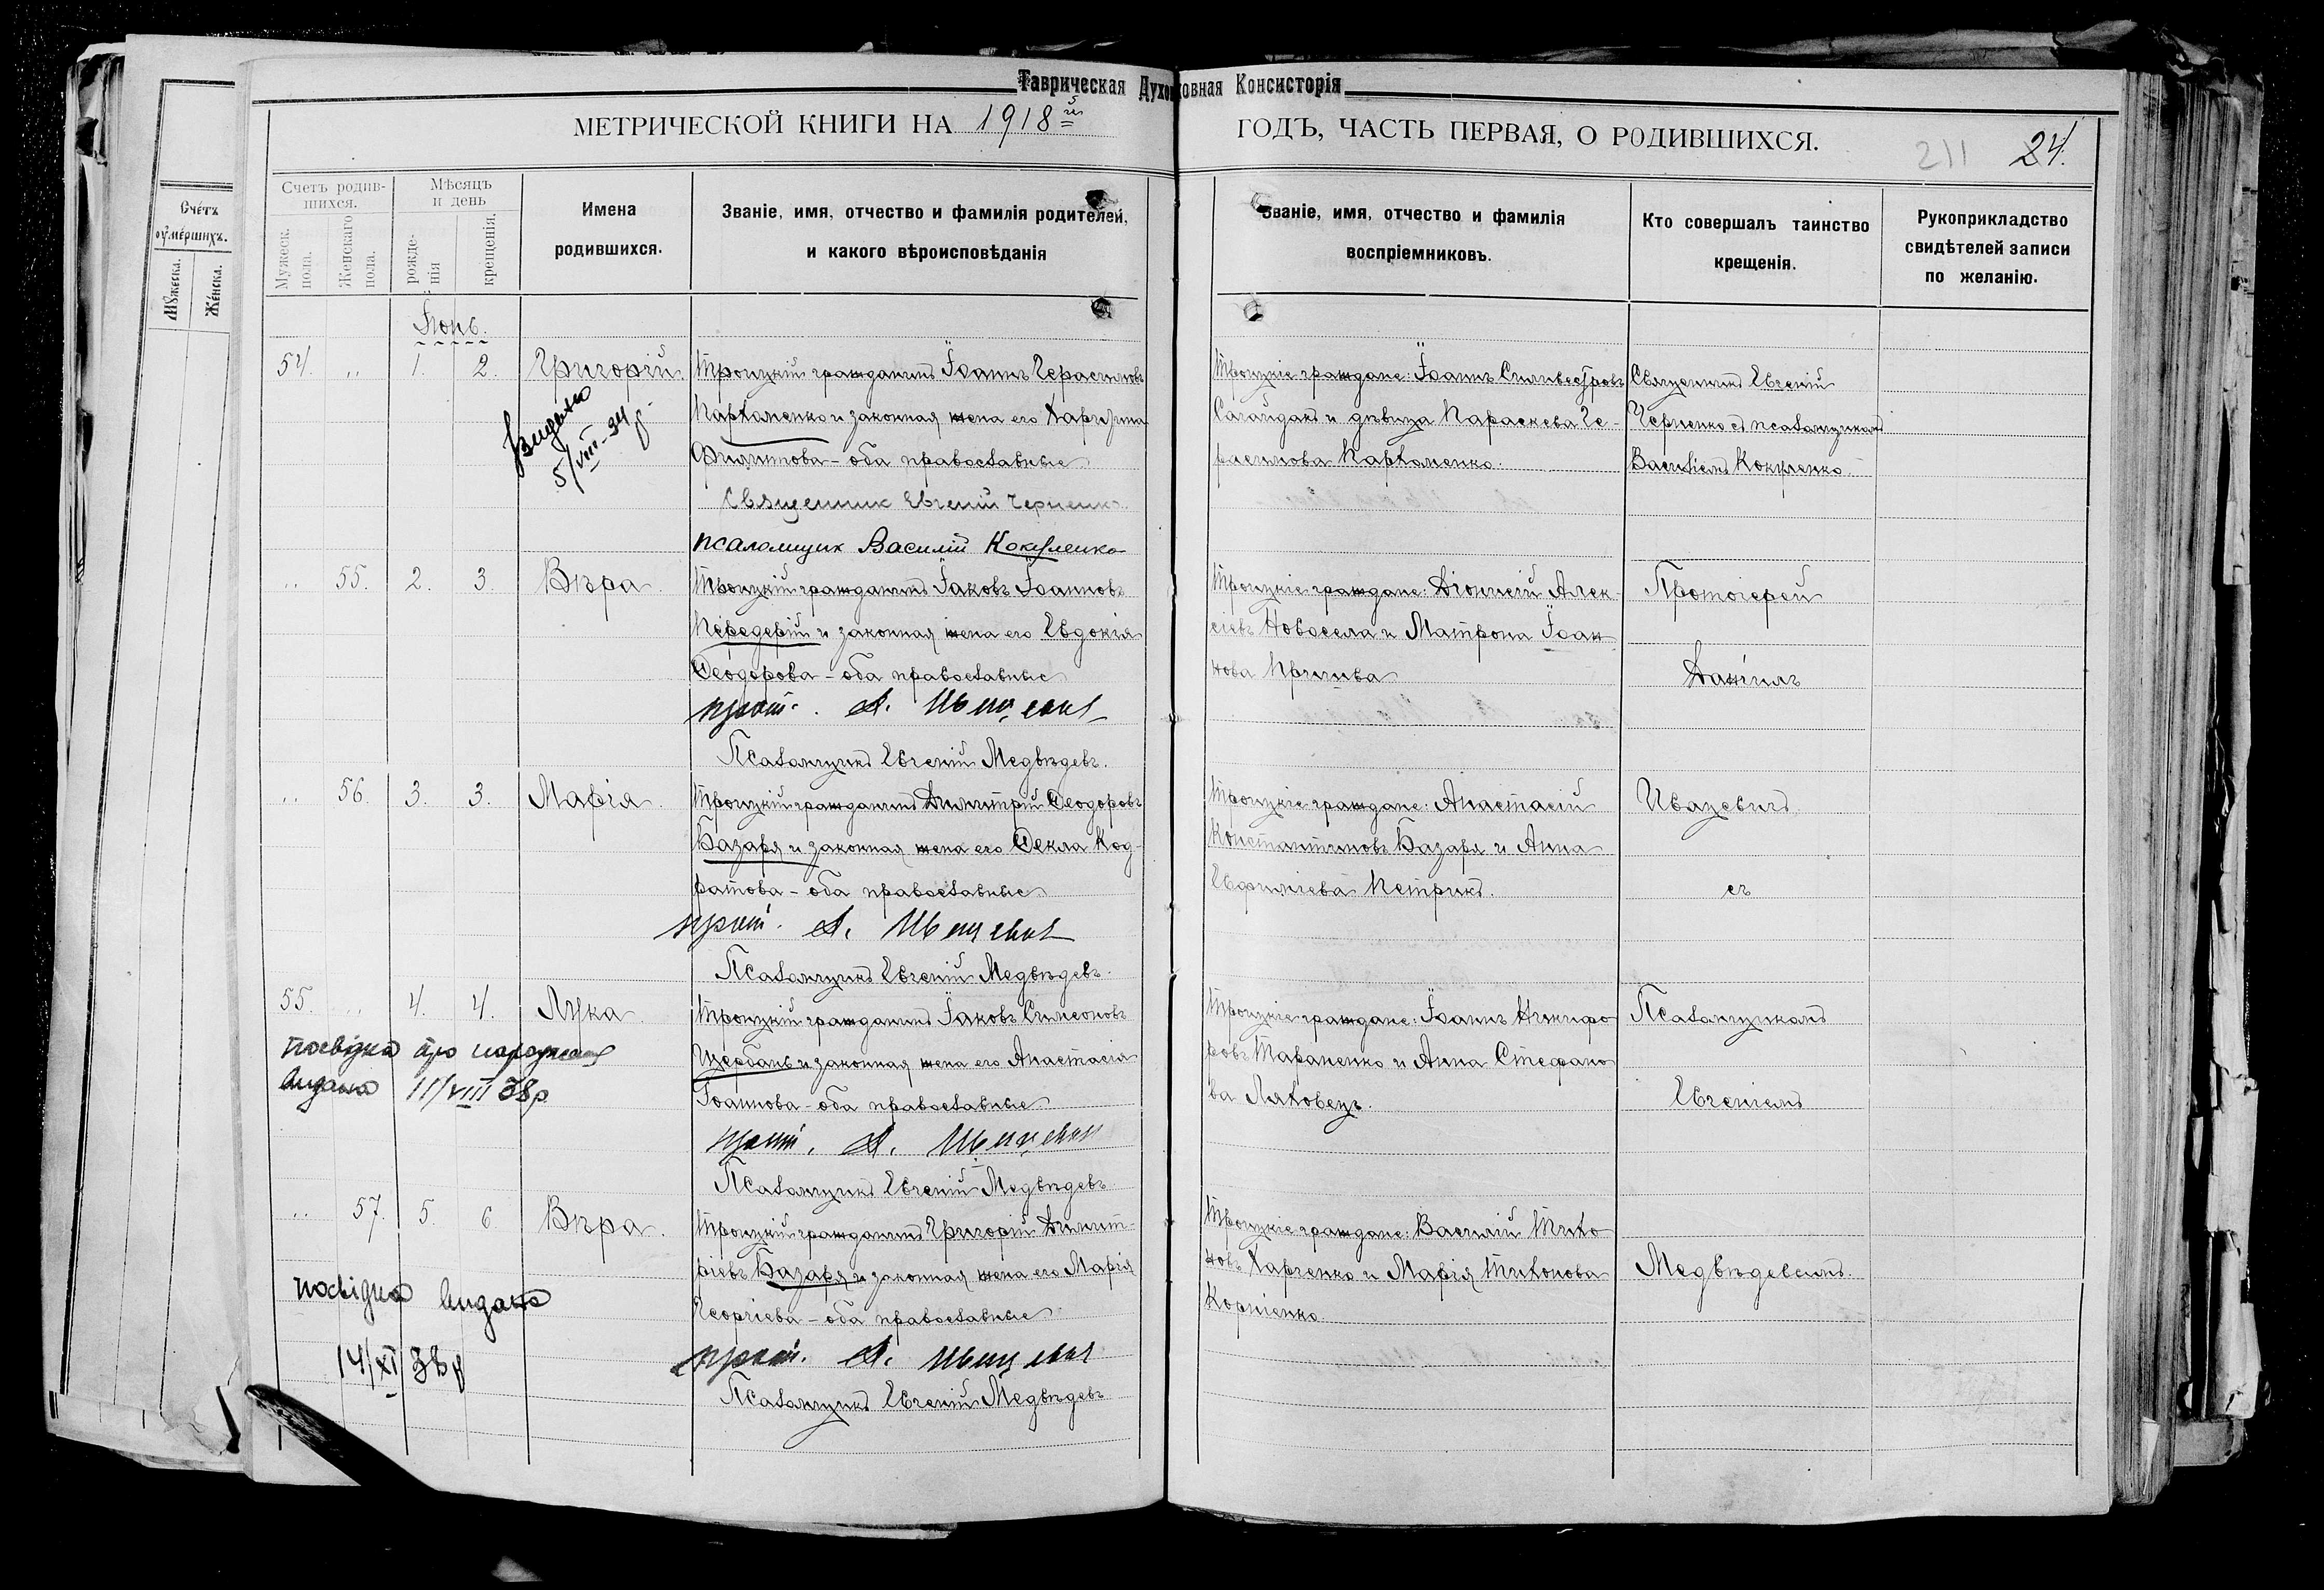 Таврическая Духовная Консисторія
МЕТРИЧЕСКОЙ КНИГИ НА 1918й ГОДЪ, ЧАСТЬ ПЕРВАЯ, О РОДИВШИХСЯ.
211 24.
Счетъ умершихъ.
Мужеска.
Женска.
Счетъ родившихся.
Мужеск. пола.
Женскаго пола.
Мѣсяцъ и день
рожденія
крещенія.
Имена
родившихся.
Званіе, имя, отчество и фамилія родителей,
и какого вѣроисповѣданія
Званіе, имя, отчество и фамилія
воспріемниковъ.
Кто совершалъ таинство
крещенія.
Рукоприкладство
свидѣтелей записи
по желанію.
Іюнь.
54. „ 1. 2. Григорій.
Видано
5/VIII-34 р
Троицкій гражданинъ Іоаннъ Герасимовъ
Пархоменко и законная жена его Харитина
Филиппова - оба православные
Священник Евгений Черненко
псаломщик Василій Кокуленко
Троицкіе граждане: Іоаннъ Сильвестровъ
Сагайдакъ и дѣвица Параскева Ге-
расимова Пархоменко.
Священникъ Евгеній
Черненко съ псаломщикомъ
Василіемъ
„ 55. 2. 3. Вѣра
Троицкій гражданинъ Іаковъ Іоанновъ
Передерій и законная жена его Евдокія
Ѳеодорова - оба православные
прот. Д. Ивацевич
Псаломщикъ Евгеній Медвѣдевъ.
Троицкіе граждане: Діонисій Алек-
сіевъ Новосела и Матрона Іоан-
нова
Протоіерей
Даніилъ
„ 56. 3. 3. Марія
Троицкій гражданинъ Димитрій Ѳеодоровъ
Базаря и законная жена его Ѳекла Код-
ратова - оба православные
прот. Д. Ивацевич
Псаломщикъ Евгеній Медвѣдевъ.
Троицкіе граждане: Анастасій
Константиновъ Базаря и Анна
Евфиміева Петрикъ.
Ивацевичъ
съ
55. „ 4. 4. Лука
посвідка про народження
видана 11/VIII 38р
Троицкій гражданинъ Іаковъ Симеоновъ
Щербань и законная жена его Анастасія
Іоаннова - оба православные
прот. Д. Ивацевич
Псаломщикъ Евгеній Медвѣдевъ
Троицкіе граждане: Іоаннъ Никифо-
ровъ Тараненко и Анна Стефано-
ва Ляховецъ.
Псаломщикомъ
Евгеніемъ
„ 57. 5. 6 Вѣра.
посвідка видана
14/XI 38р
Троицкій гражданинъ Григорій Димит-
ріевъ Базаря и законная жена его Марія
Георгіева - оба православные
прот. Д. Ивацевич
Псаломщикъ Евгеній Медвѣдевъ
Троицкіе граждане: Василій Тихо-
новъ Харченко и Марія Тихонова
Корніенко.
Медвѣдевымъ.